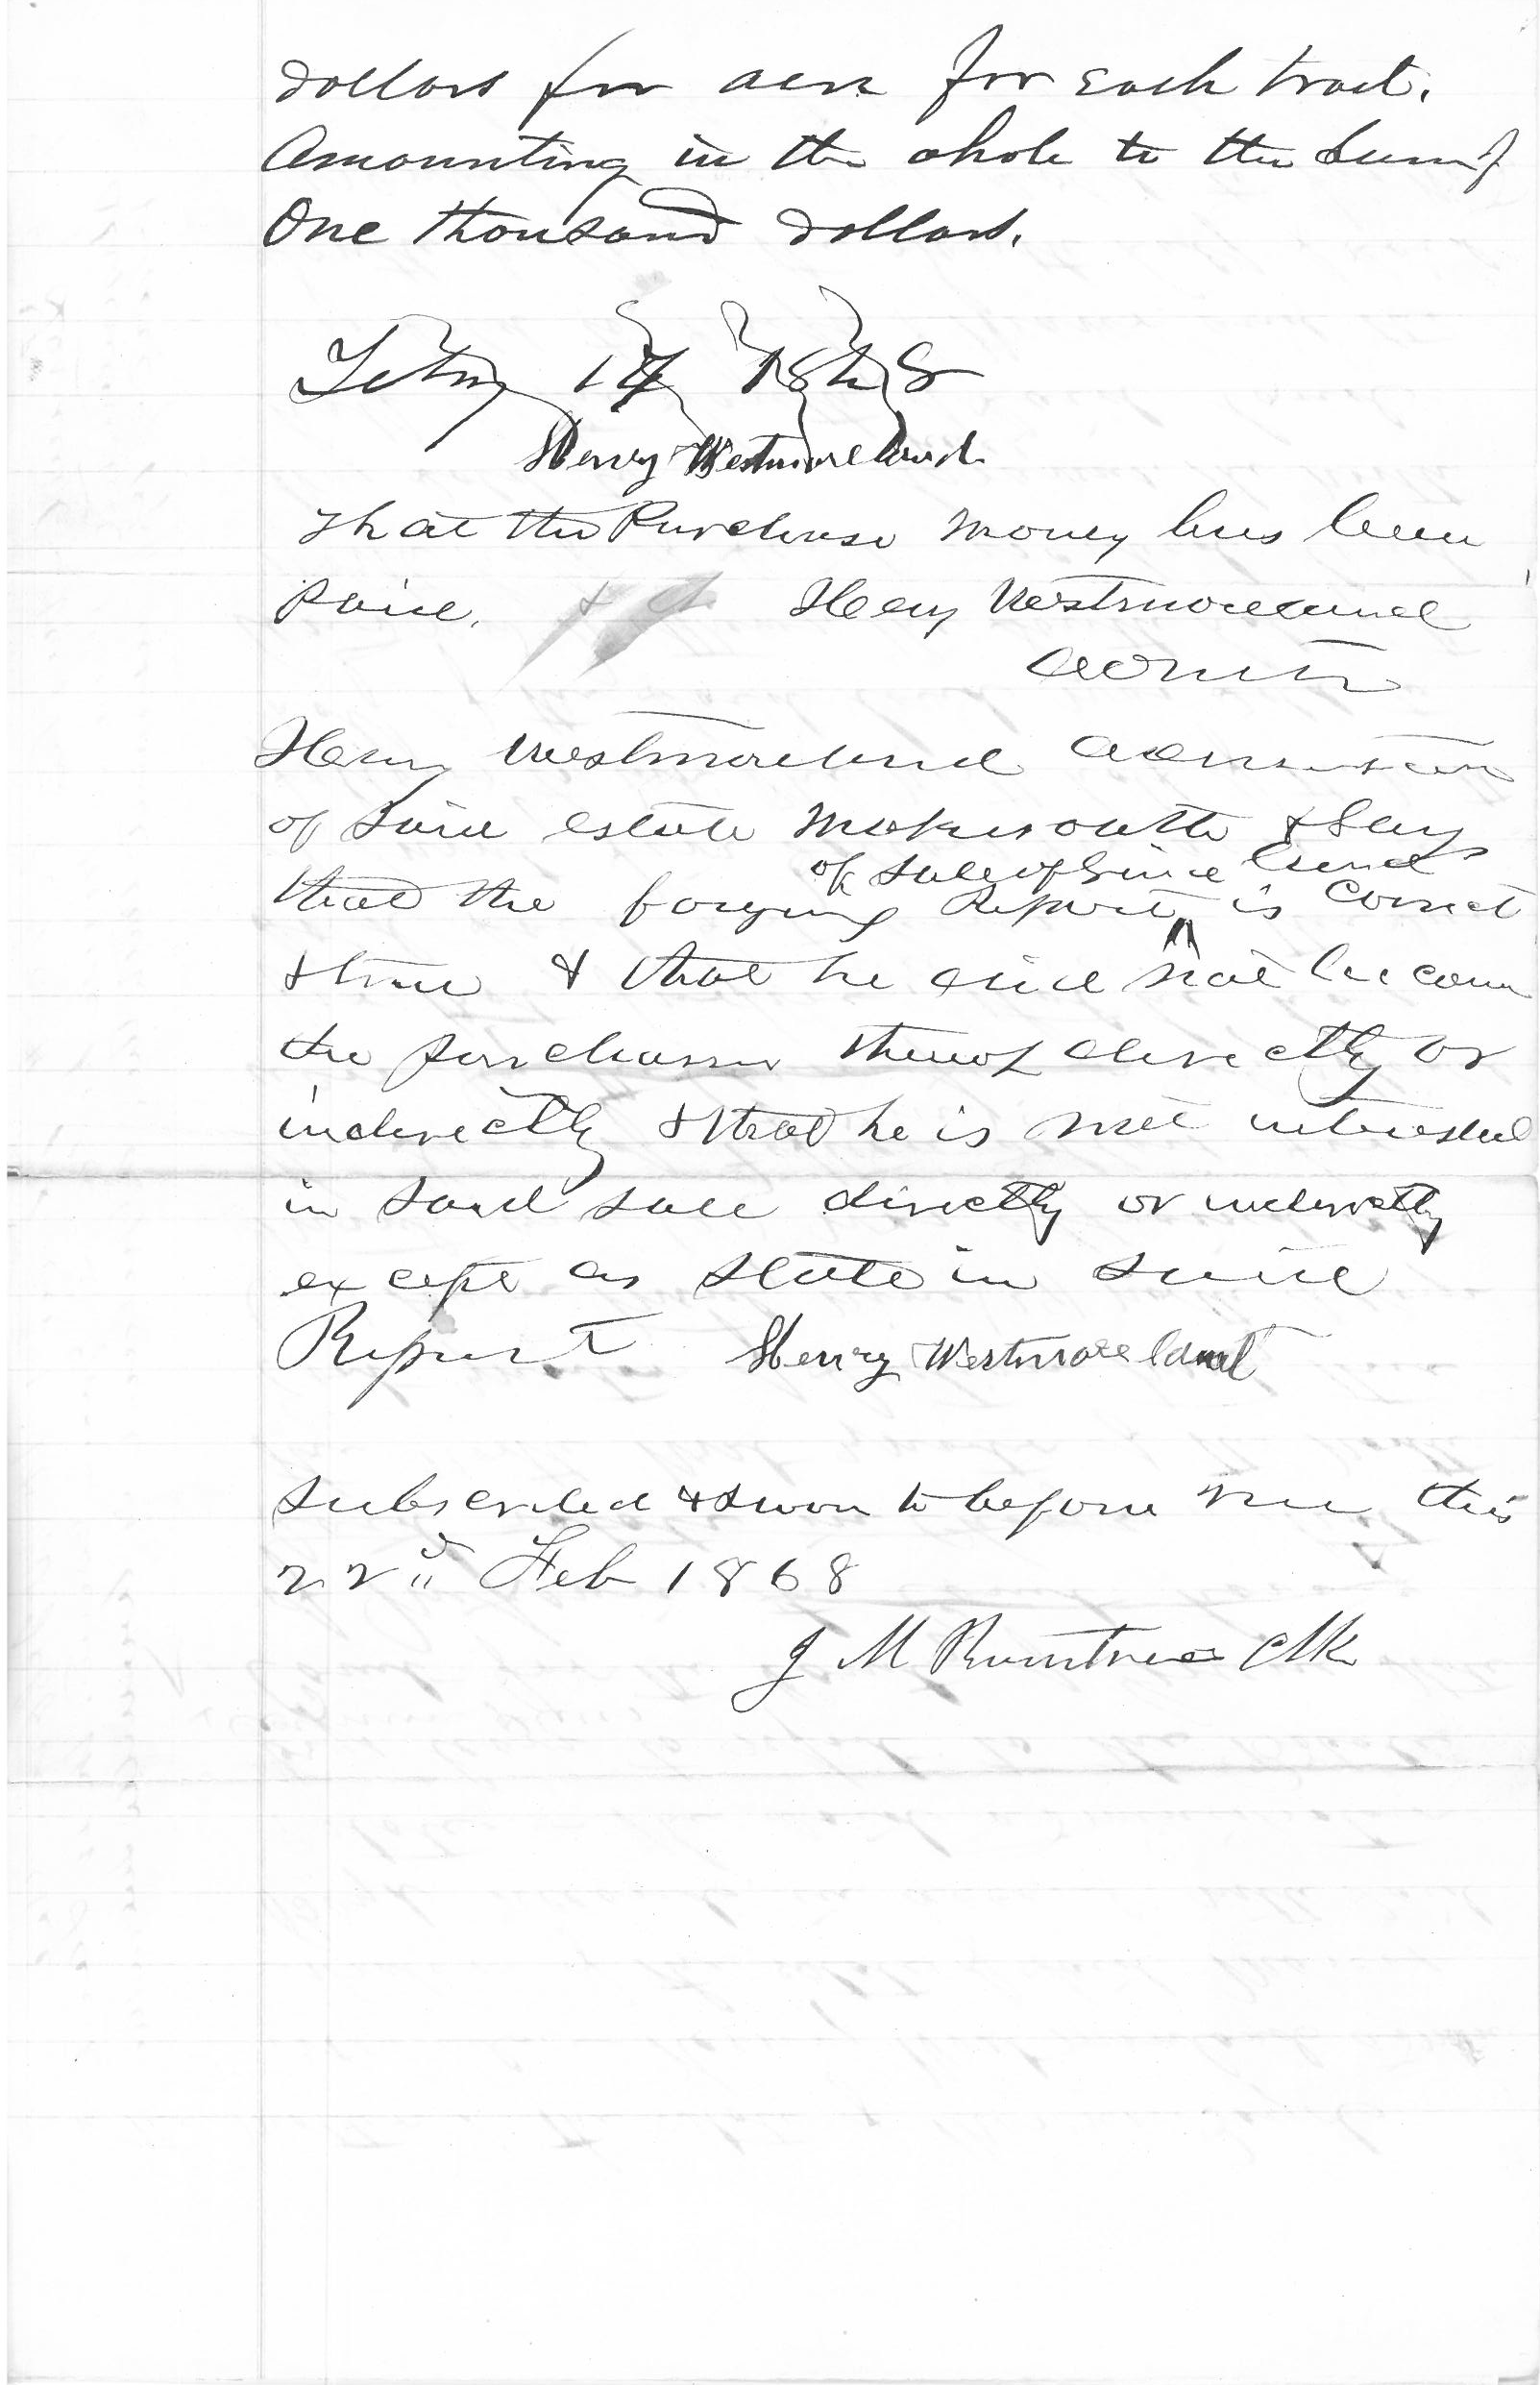 dollars per acre for Each tract.
Amounting in the whole to the Sum of
One thousand dollars.
Henry Westmoreland
That the Purchase money has been
paid. Henry Westmoreland
Admtr
Henry Westmoreland
of said estate makes oath & says
of sale of said land
that the forgoing Report is correct
& true & that he did not become
the purchaser thereof directly or
indirectly & that he is not interested
in said sale directly or indirectly
except as state in said
Report Henry Westmoreland
Subscribed & sworn to before me this
22d Feb 1868
J M Rountree Clk